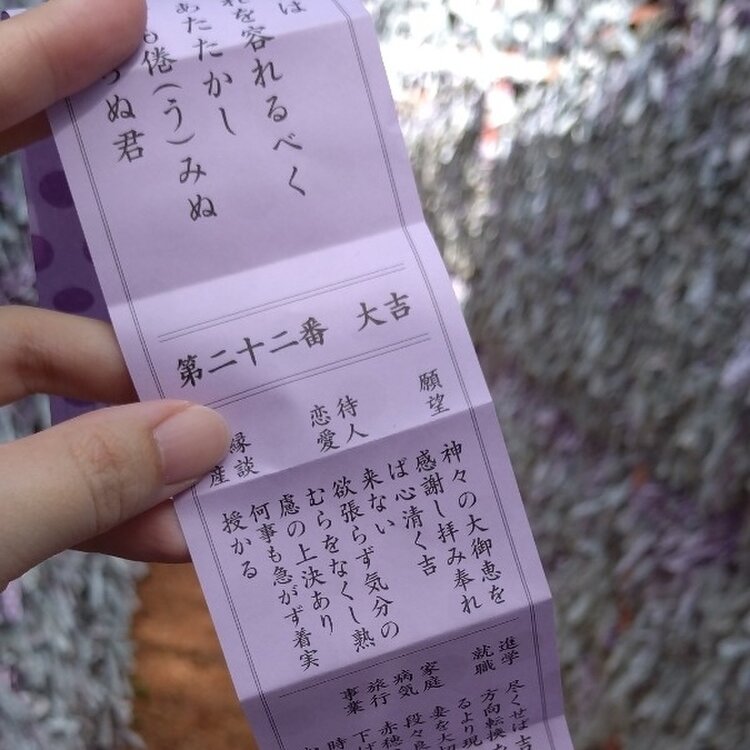 は
れを容れるべく
あたたかし
も倦(う)みぬ
ぬ君
第二十二番 大吉
願望 神々の大御恵を
感謝し拝み奉れ
ば心清く吉
待人 来ない
恋愛 欲張らず気分の
むらをなくし熟
慮の上決あり
縁談 何事も急がず着実
産 授かる
進学 尽くせば吉
就職 方向転換
るより現
家庭 妻を大切
病気 段々良
旅行 赤穂
事業 下げ
時